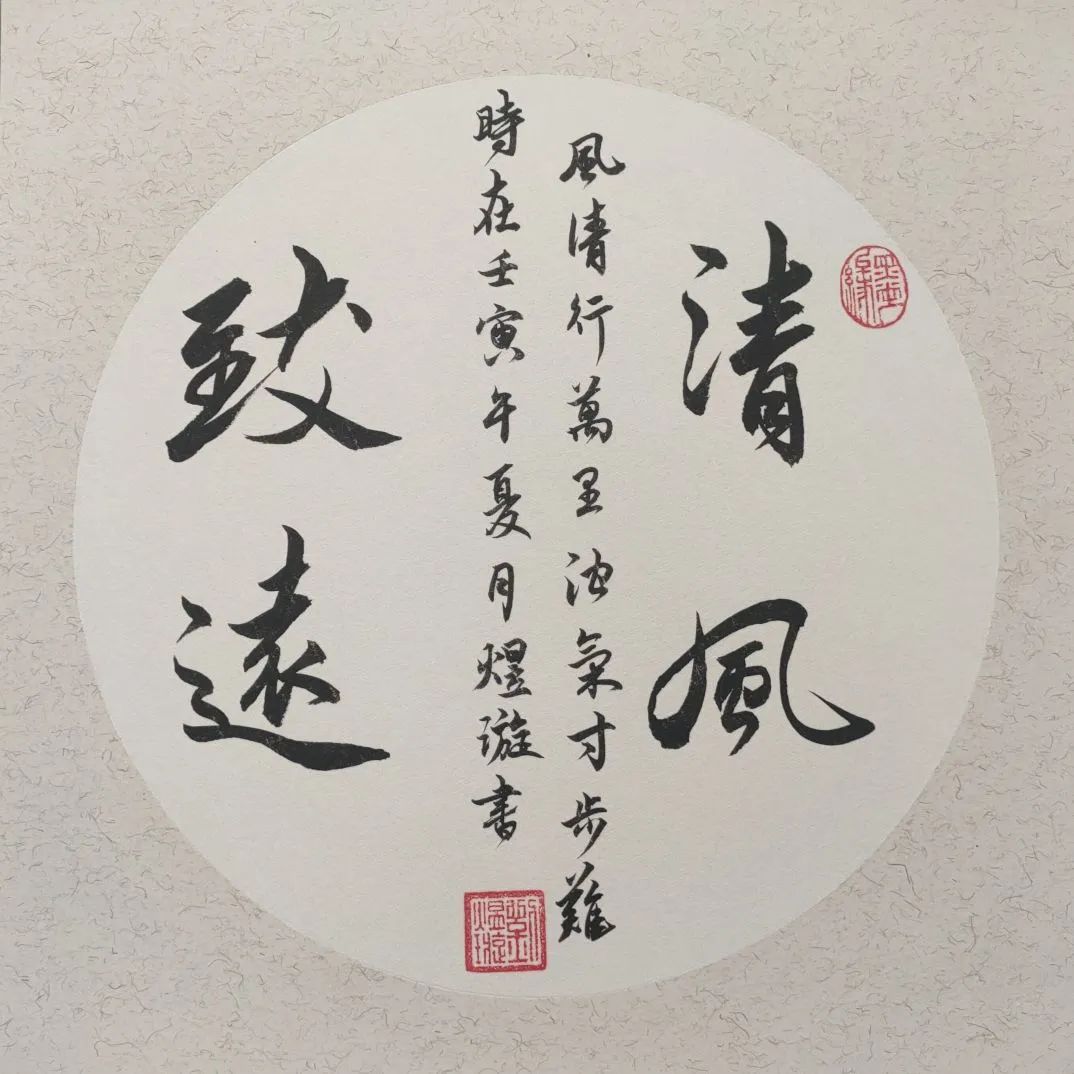 清風
風清行萬里濁氣寸步難
時在壬寅年夏月煜漩書
致遠
墨緣